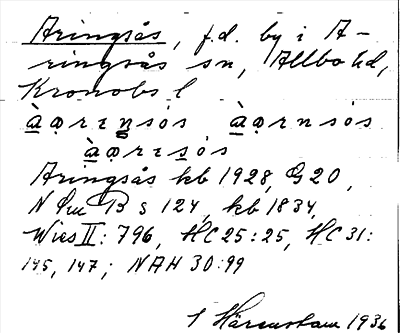 Aringsås, f.d. by i A-
ringsås sn, Allbo hd,
Kronobs l
àǫrɪŋsós àǫrnsós
àǫrɪsós
Aringsås kb 1928, G20,
N Sm B s 124, kb 1834,
Wies II: 796, HC 25:25, HC 31:
145, 147; NAH 30:99
1936